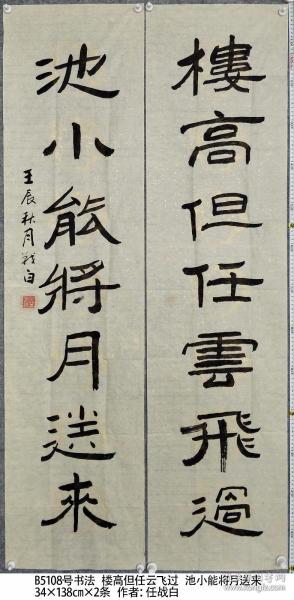 樓高但任雲飛過
池小能將月送來
壬辰秋月戰白
B5108号书法 楼高但任云飞过 池小能将月送来
34×138cm×2条 作者:任战白